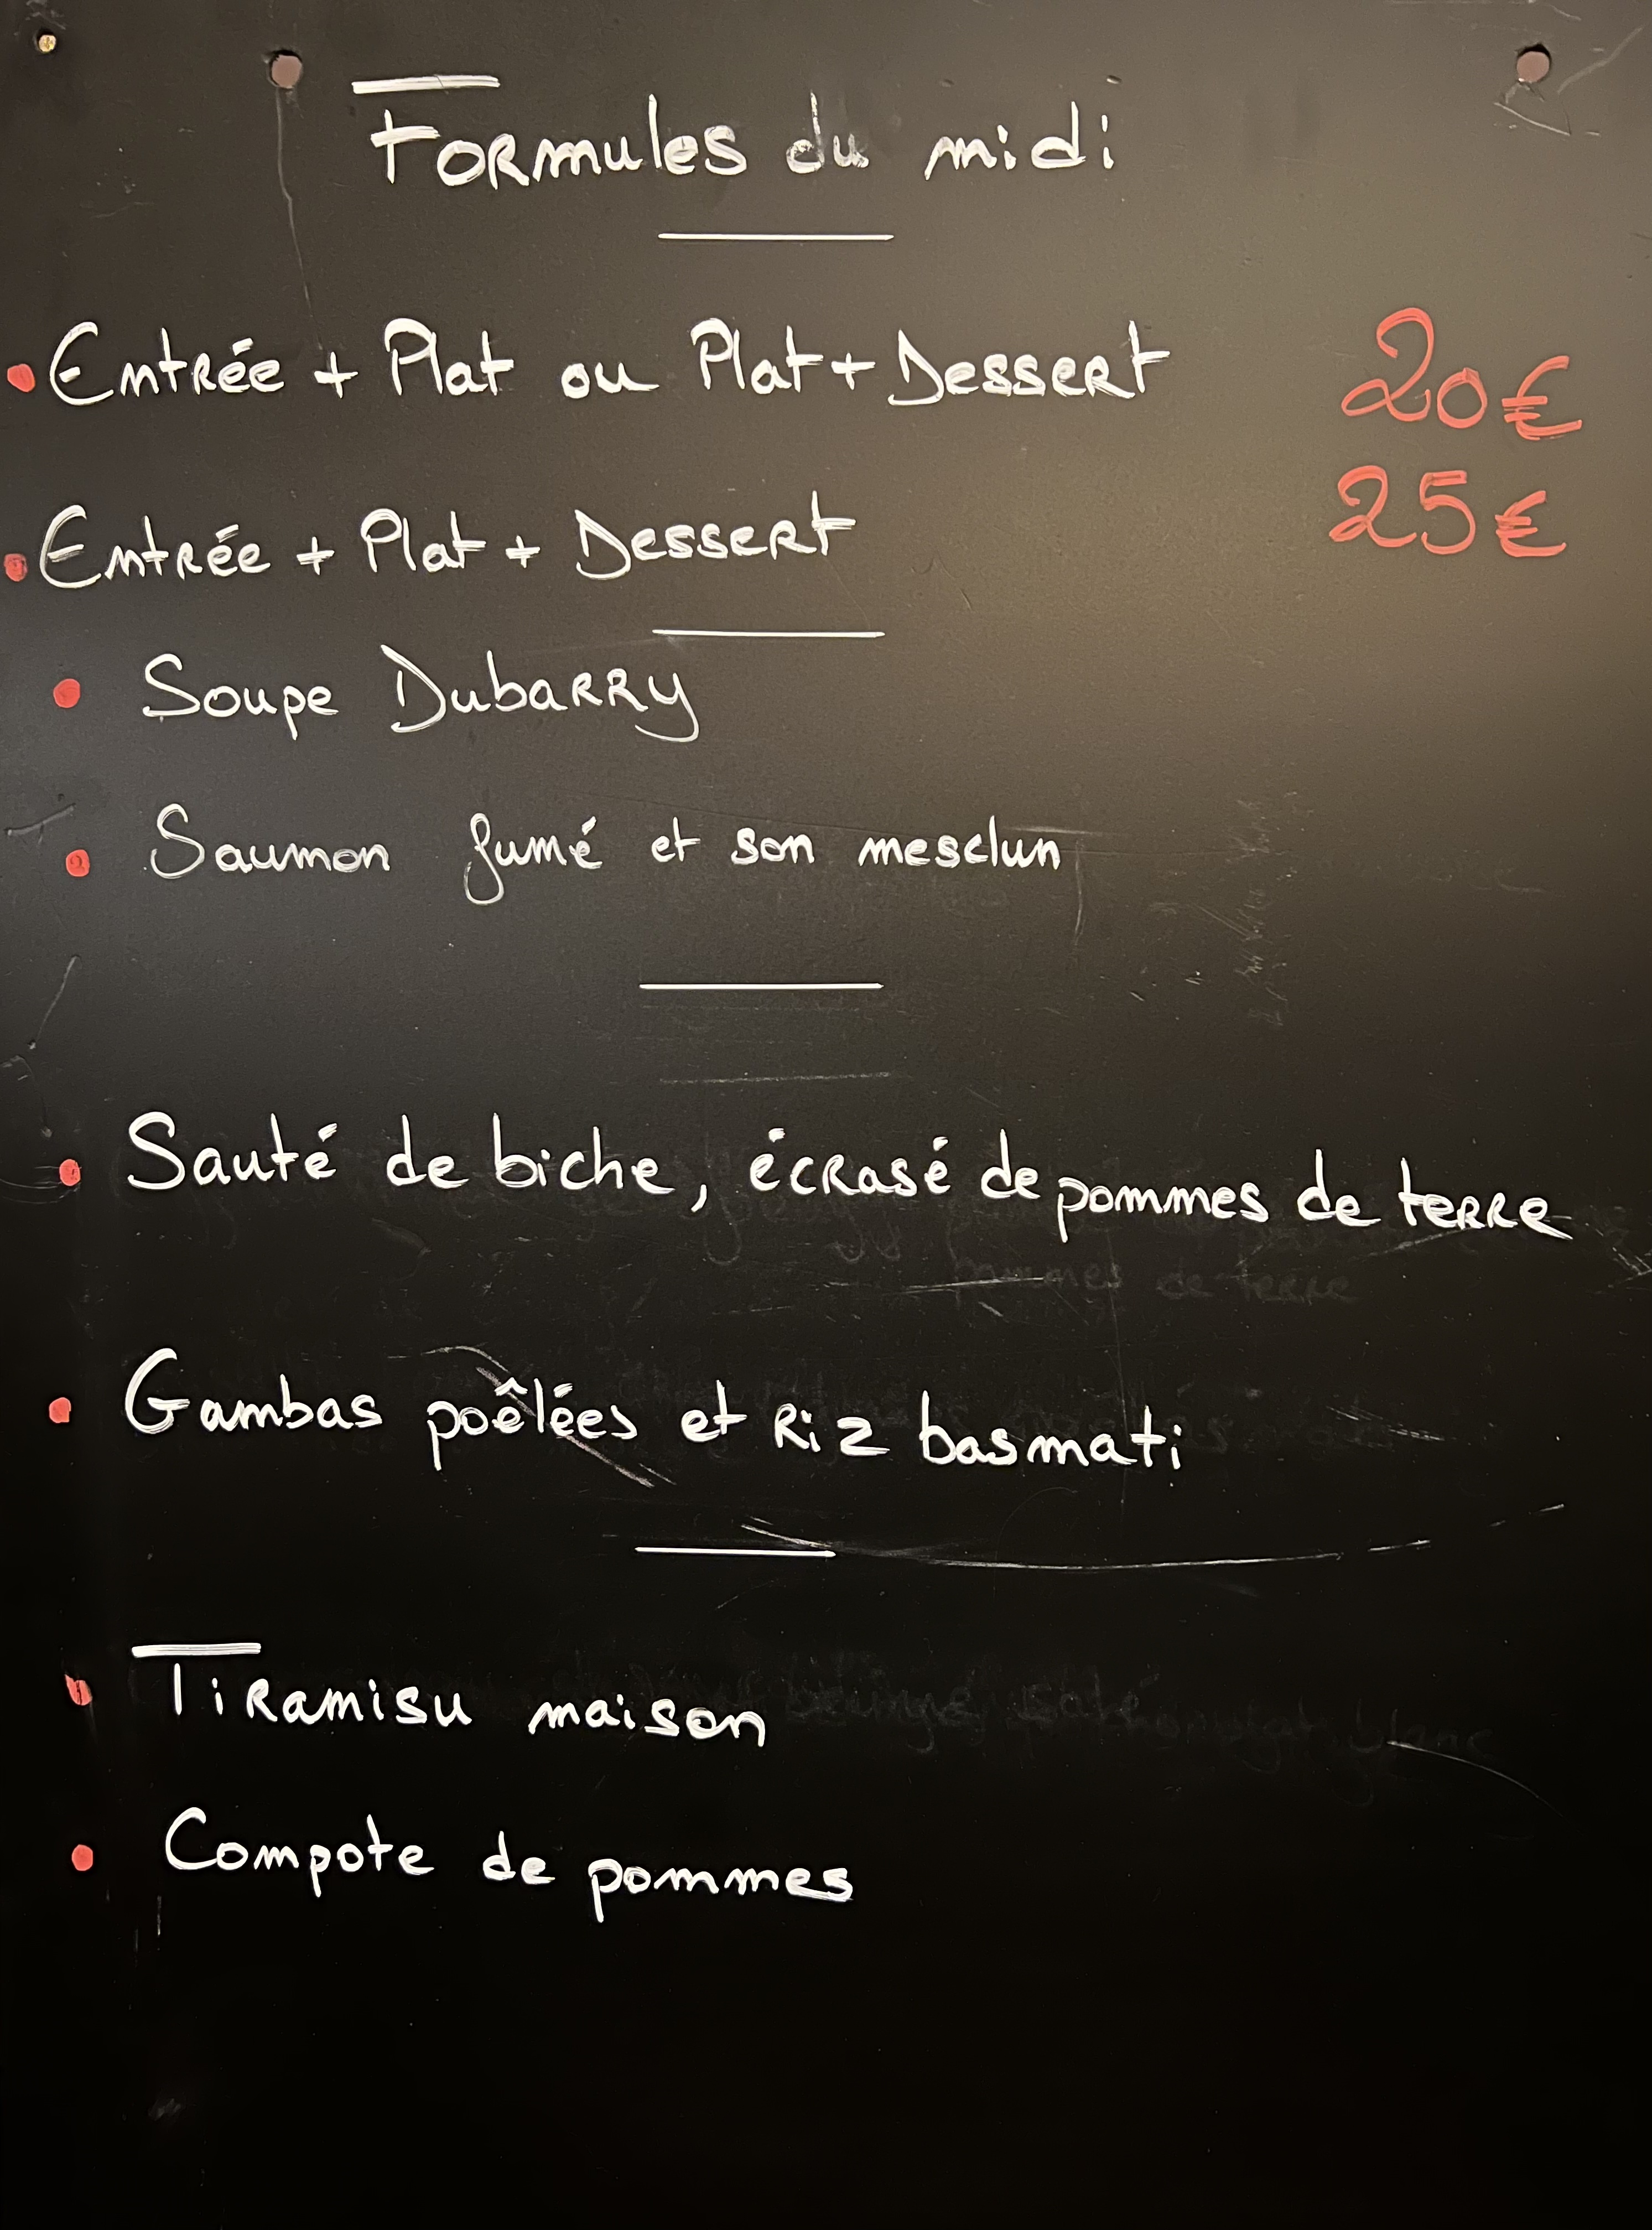 Formules du midi
• Entrée + Plat ou Plat + Dessert 20€
• Entrée + Plat + Dessert 25€
• Soupe Dubarry
• Saumon fumé et son mesclun
• Sauté de biche, écrasé de pommes de terre
pommes de terre
• Gambas poêlées et Riz basmati
• Tiramisu maison
• Compote de pommes